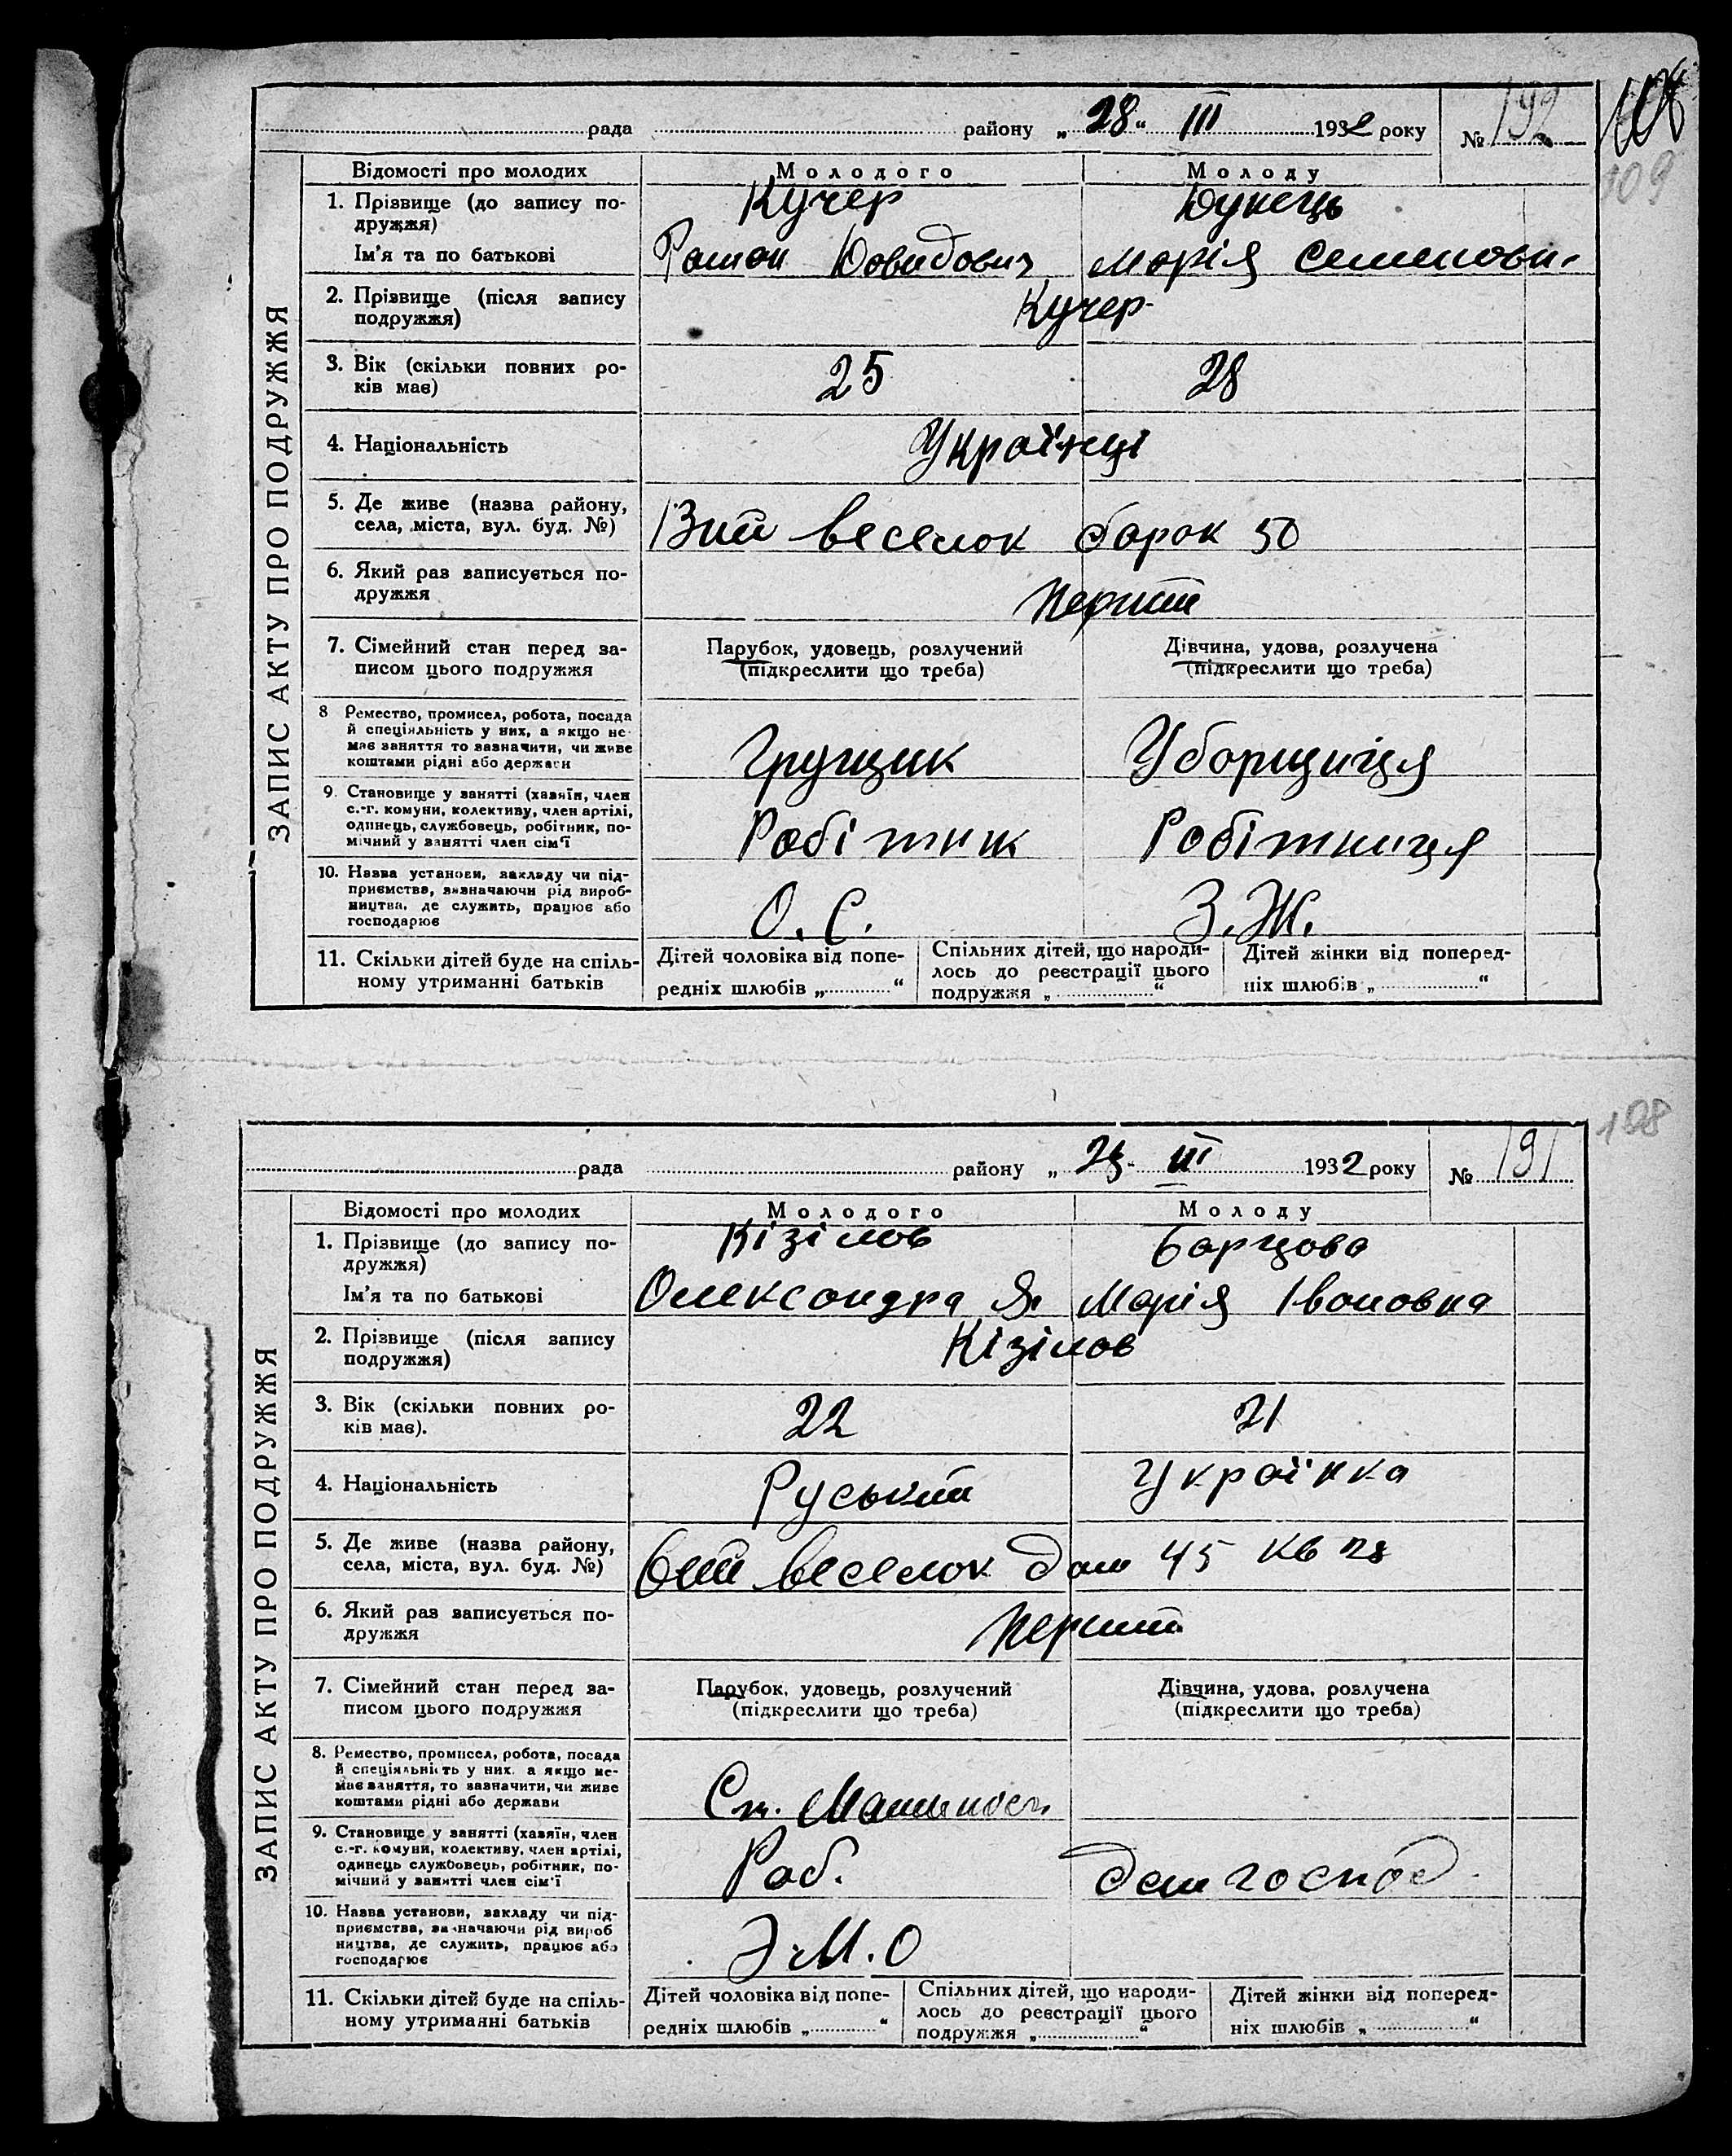 рада района „ 28 “ III 1932 року № 192
109
ЗАПИС АКТУ ПРО ПОДРУЖЖЯ
Відомості про молодих Молодого Молоду
1. Прізвище (до запису по- Кучер
дружжя)
Ім'я та по батькові Роман Давидович Марія Семенови.
2. Прізвище (після запису Кучер
подружжя)
3. Вік (скільки повних ро- 25 28
ків має)
4. Національність Українці
5. Де живе (назва району,
села, міста, вул. буд. №) 13ий веселок барок 50
6. Який раз записується по- Перший
дружжя
7. Сімейний стан перед за- Парубок, удовець, розлучений Дівчина, удова, розлучена
писом цього подружжя (підкреслити що треба) (підкреслити що треба)
8 Ремество, промисел, робота, посада
й спеціяльність у них, а якщо не-
має заняття то зазначити, чи живе Грущик Уборщиця
коштами рідні або держави
9. Становище у занятті (хазяїн, член
с.-г. комуни, колективу, член артілі,
одинець, службовець, робітник, по- Робітник Робітниця
мічний у занятті член сім'ї
10. Назва установи, закладу чи під-
приємства, визначаючи рід вироб-
ництва, де служить, працює або О. С. З. Ж.
господарює
11. Скільки дітей буде на спіль- Дітей чоловіка від попе- Спільних дітей, що народи- Дітей жінки від поперед-
ному утриманні батьків редніх шлюбів „ “ лось до реєстрації цього ніх шлюбів „ “
подружжя „ “
108
рада району „ III 1932 року № 191
ЗАПИС АКТУ ПРО ПОДРУЖЖЯ
Відомості про молодих Молодого Молоду
1. Прізвище (до запису по- Кізілов Барцова
дружжя)
Ім'я та по батькові Олександра Я. Марія Івановна
2. Прізвище (після запису Кізілов
подружжя)
3. Вік (скільки повних ро- 22 21
ків має).
4. Національність Руський Українка
5. Де живе (назва району,
села, міста, вул. буд. №) 6ий веселок дом 45 кв 28
6. Який раз записується по- Перший
дружжя
7. Сімейний стан перед за- Парубок, удовець, розлучений Дівчина, удова, розлучена
писом цього подружжя (підкреслити що треба) (підкреслити що треба)
8. Ремество, промисел, робота, посада
й спеціяльність у них, а якщо не-
має заняття, то зазначити, чи живе
коштами рідні або держави Ст. Машиніст.
9. Становище у занятті (хазяїн, член
с.-г. комуни, колективу, член артілі,
одинець службовець, робітник, по- Роб. дом господ.
мічний у занятті член сім'ї
10. Назва установи, закладу чи під-
приємства, визначаючи рід вироб
ництва, де служить, працює або Э.М.О
господарює
11. Скільки дітей буде на спіль- Дітей чоловіка від попе- Спільних дітей, що народи- Дітей жінки від поперед-
ному утриманні батьків редніх шлюбів „ “ лось до реєстрації цього ніх шлюбів „ “
подружжя „ “